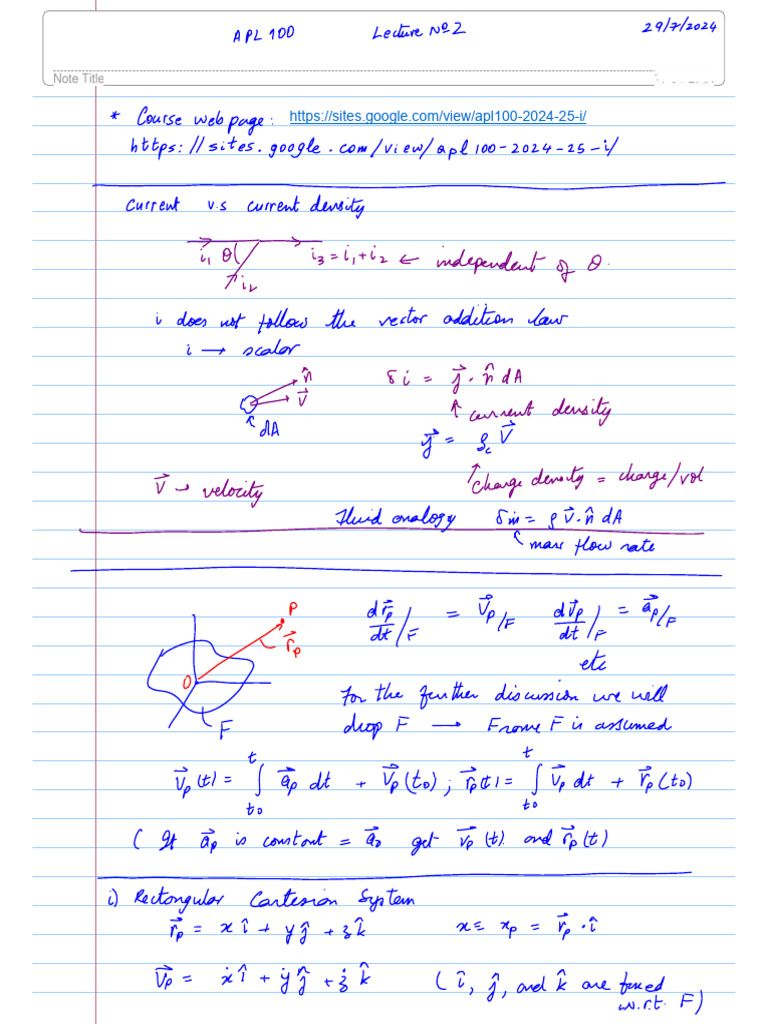 APL 100 Lecture Nº 2 29/7/2024
Note Title
* Course webpage: https://sites.google.com/view/apl100-2024-25-i/
https://sites.google.com/view/apl100-2024-25-i/
Current v.s current density
i₁ θ i₃ = i₁ + i₂ ← independent of θ.
i₂
i does not follow the vector addition law
i → scalar
n̂ δi = j⃗ · n̂ dA
V⃗ ↑ current density
dA j⃗ = ρ_c V⃗
V⃗ → velocity ↑ Charge density = charge/vol
Fluid analogy δṁ = ρ V⃗ · n̂ dA
↑ mass flow rate
P dr⃗_P/dt /F = V⃗_P/F dV⃗_P/dt /F = a⃗_P/F
r⃗_P
etc
O For the further discussion we will
F drop F → Frame F is assumed
V⃗_P(t) = ∫_{t0}^{t} a⃗_P dt + V⃗_P(t0) ; r⃗_P(t) = ∫_{t0}^{t} V⃗_P dt + r⃗_P(t0)
( If a⃗_P is constant = a⃗_0 get V⃗_P(t) and r⃗_P(t)
i) Rectangular Cartesian System
r⃗_P = x î + y ĵ + z k̂ x ≡ x_P = r⃗_P · î
V⃗_P = ẋ î + ẏ ĵ + ż k̂ ( î, ĵ, and k̂ are fixed
w.r.t. F)